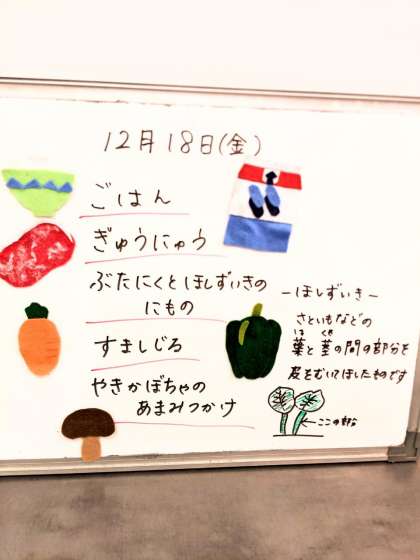 12月18日(金)
ごはん
ぎゅうにゅう
ぶたにくとほしずいきの
にもの
すましじる
やきかぼちゃの
あまみつかけ
ーほしずいきー
さといもなどの
は くき
葉と茎の間の部分を
皮をむいてほしたものです
ここの部分